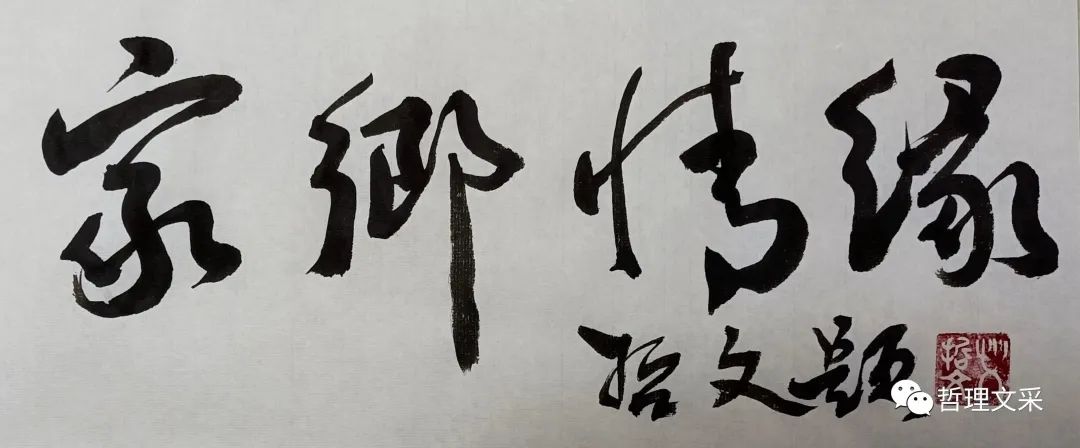 家鄉情緣
哲文题
哲理文采